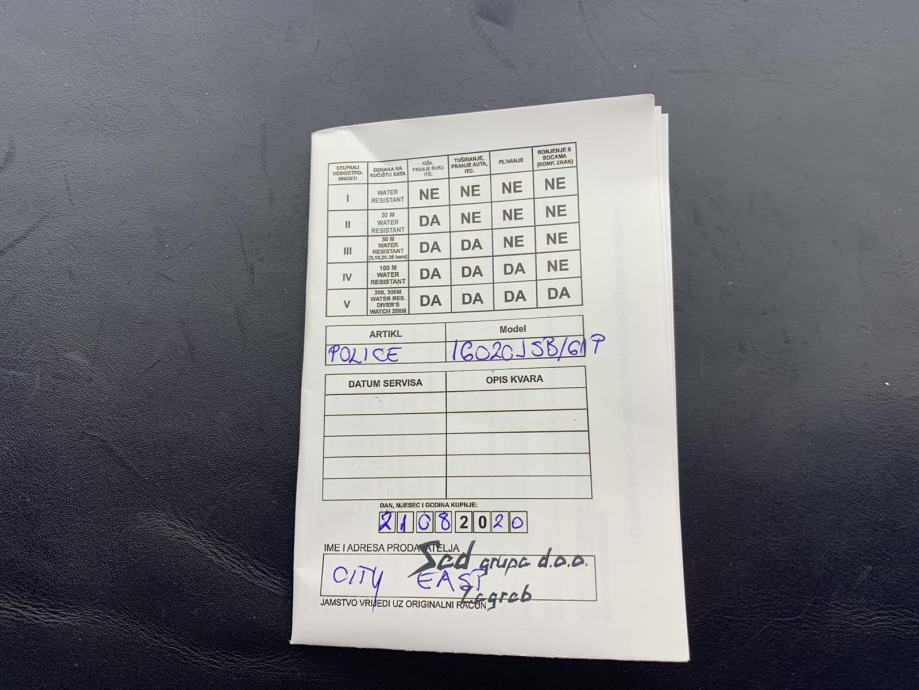 STUPANJ VODOOTPO-RNOSTI OZNAKA NA KUĆIŠTU SATA KIŠA, PRANJE RUKU ITD. TUŠIRANJE, PRANJE AUTA, IED. PLIVANJE RONJENJE S BOCAMA (KOMP. ZRAK)
I WATER RESISTANT NE NE NE NE
II 30 M WATER RESISTANT DA NE NE NE
III 50 M WATER RESISTANT DA DA NE NE
IV 100 M WATER RESISTANT DA DA DA NE
V 200, 300M WATER RES. DIVER'S WATCH 200M DA DA DA DA
ARTIKL Model
POLICE 16020JSB/61P
DATUM SERVISA OPIS KVARA
DAN, MJESEC I GODINA KUPNJE:
21082020
IME I ADRESA PRODAVATELJA
Sad grupa d.o.o.
CITY EAST
Zagreb
JAMSTVO VRIJEDI UZ ORIGINALNI RAČUN